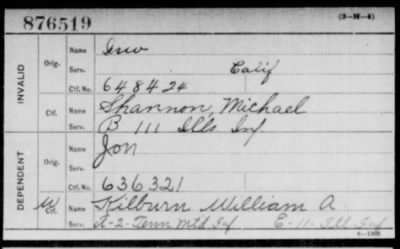 876519 (3-M-4)
INVALID
Orig. Name Inv
Serv. Calif
Ctf. No. 648424
Ctf. Name Shannon, Michael
Serv. B 111 Ills Inf
DEPENDENT
Orig. Name
Serv.
Ctf. No. 636321
W Ctf. Name Kilburn William A
Serv. A-2-Tenn Mtd Inf E-11-Ill Inf